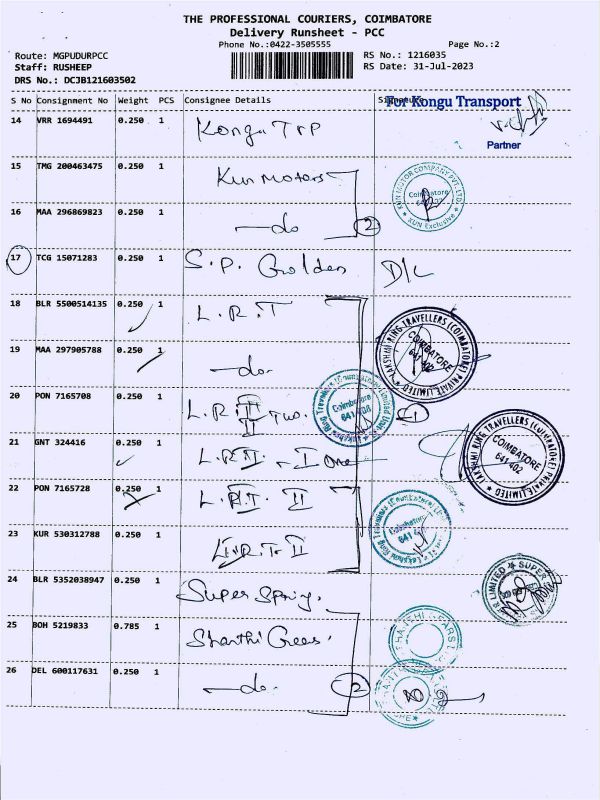 THE PROFESSIONAL COURIERS, COIMBATORE
Delivery Runsheet - PCC
Phone No.:0422-3505555 Page No.:2
Route: MGPUDURPCC RS No.: 1216035
Staff: RUSHEEP RS Date: 31-Jul-2023
DRS No.: DCJB121603502
S No Consignment No Weight PCS Consignee Details Signature
For Kongu Transport
Partner
14 VRR 1694491 0.250 1 Kongu TRP
15 TMG 200463475 0.250 1 Kun Motors
KUN MOTOR COMPANY PVT. LTD.
Coimbatore
KUN Exclusive
16 MAA 296869823 0.250 1 -do 2
17 TCG 15071283 0.250 1 S.P. Golden D/L
18 BLR 5500514135 0.250 1 L.R.T
LAKSHMI RING TRAVELLERS (COIMBATORE) PRIVATE LIMITED
COIMBATORE
641 402
19 MAA 297905788 0.250 1 -do-
20 PON 7165708 0.250 1 L.R.T II Two.
Coimbatore
21 GNT 324416 0.250 1 L.R.T. - I One
LAKSHMI RING TRAVELLERS (COIMBATORE) PRIVATE LIMITED
COIMBATORE
641 402
22 PON 7165728 0.250 1 L.R.T. II
Coimbatore
23 KUR 530312788 0.250 1 L.R.T. II
24 BLR 5352038947 0.250 1 Super Spring.
25 BOH 5219833 0.785 1 Shanthi Gears.
26 DEL 600117631 0.250 1 -do- 2